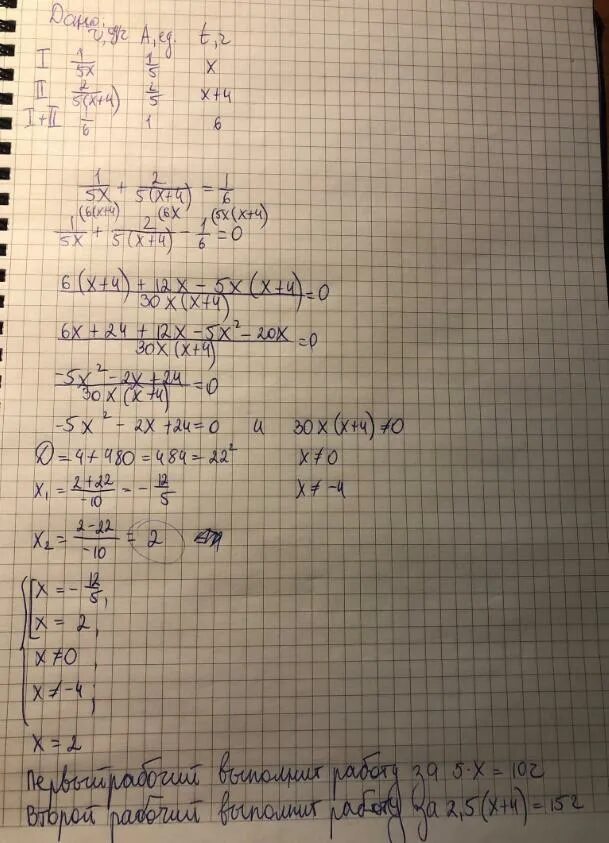 Дано:
v, 1/г A, ед. t, г
I 1/5x 1/5 x
II 2/5(x+4) 2/5 x+4
I+II 1/6 1 6
1/5x + 2/5(x+4) = 1/6
1/5x (6(x+4) + 2/5(x+4) (6x - 1/6 (5x(x+4) = 0
6(x+4) + 12x - 5x(x+4) / 30x(x+4) = 0
6x + 24 + 12x - 5x² - 20x / 30x(x+4) = 0
-5x² - 2x + 24 / 30x(x+4) = 0
-5x² - 2x + 24 = 0 и 30x(x+4) ≠ 0
D = 4 + 480 = 484 = 22² x ≠ 0
x₁ = 2+22/-10 = -12/5 x ≠ -4
x₂ = 2-22/-10 = 2
x = -12/5,
x = 2,
x ≠ 0,
x ≠ -4;
x = 2
Первый рабочий выполнит работу за 5·x = 10г
Второй рабочий выполнит работу за 2,5(x+4) = 15г